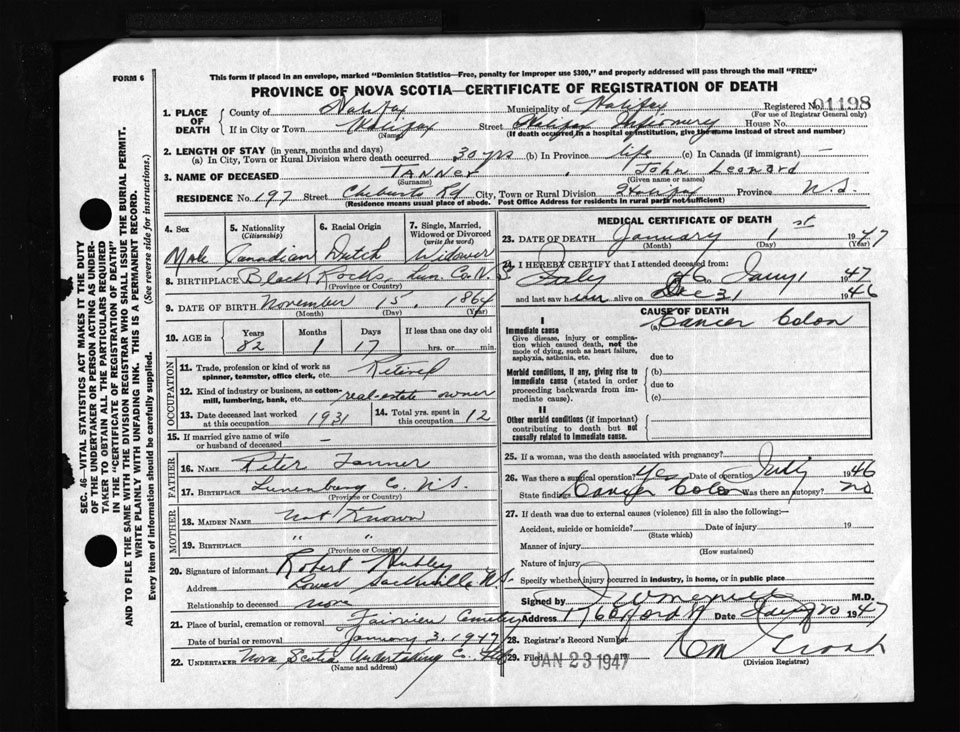 FORM 6
This form if placed in an envelope, marked "Dominion Statistics—Free, penalty for improper use $300," and properly addressed will pass through the mail "FREE"
PROVINCE OF NOVA SCOTIA—CERTIFICATE OF REGISTRATION OF DEATH
SEC. 46—VITAL STATISTICS ACT MAKES IT THE DUTY
OF THE UNDERTAKER OR PERSON ACTING AS UNDER-
TAKER TO OBTAIN ALL THE PARTICULARS REQUIRED
IN THE "CERTIFICATE OF REGISTRATION OF DEATH"
AND TO FILE THE SAME WITH THE DIVISION REGISTRAR WHO SHALL ISSUE THE BURIAL PERMIT.
WRITE PLAINLY WITH UNFADING INK. THIS IS A PERMANENT RECORD.
Every item of information should be carefully supplied. (See reverse side for instructions.)
1. PLACE OF DEATH
County of Halifax Municipality of Halifax Registered No. 01198
(For use of Registrar General only)
If in City or Town Halifax Street Halifax Infirmary House No.
(Name) (If death occurred in a hospital or institution, give the name instead of street and number)
2. LENGTH OF STAY (in years, months and days)
(a) In City, Town or Rural Division where death occurred 30 yrs (b) In Province life (c) In Canada (if immigrant) —
3. NAME OF DECEASED Tanner, John Leonard
(Surname) (Given name or names)
RESIDENCE No. 197 Street Chebucto Rd City, Town or Rural Division Halifax Province N.S.
(Residence means usual place of abode. Post Office Address for residents in rural parts not sufficient)
4. Sex 5. Nationality (Citizenship) 6. Racial Origin 7. Single, Married, Widowed or Divorced (write the word)
Male Canadian Dutch Widower
8. BIRTHPLACE Black Rocks Lun. Co. N.S
(Province or Country)
9. DATE OF BIRTH November 15, 1864
(Month) (Day) (Year)
10. AGE in Years Months Days If less than one day old
82 1 17 hrs. or min.
OCCUPATION
11. Trade, profession or kind of work as spinner, teamster, office clerk, etc. Retired
12. Kind of industry or business, as cotton-mill, lumbering, bank, etc. real-estate owner
13. Date deceased last worked at this occupation 1931 14. Total yrs. spent in this occupation 12
15. If married give name of wife or husband of deceased —
FATHER
16. Name Peter Tanner
17. Birthplace Lunenburg Co. N.S.
(Province or Country)
MOTHER
18. Maiden Name Not Known
19. Birthplace " "
(Province or Country)
20. Signature of informant Robert Hubley
Address Lower Sackville N.S.
Relationship to deceased none
21. Place of burial, cremation or removal Fairview Cemetery
Date of burial or removal January 3, 1947
22. UNDERTAKER Nova Scotia Undertaking Co. Ltd
(Name and address)
MEDICAL CERTIFICATE OF DEATH
23. DATE OF DEATH January 1st 1947
(Month) (Day) (Year)
24. I HEREBY CERTIFY that I attended deceased from:
July 46 to Jany 1 1947
and last saw him alive on Dec 31 1946
CAUSE OF DEATH
I
Immediate cause (a) Cancer Colon
Give disease, injury or complica-
tion which caused death, not the
mode of dying, such as heart failure,
asphyxia, asthenia, etc. due to
Morbid conditions, if any, giving rise to (b)
immediate cause (stated in order due to
proceeding backwards from im-
mediate cause). (c)
II
Other morbid conditions (if important)
contributing to death but not
causally related to immediate cause.
25. If a woman, was the death associated with pregnancy?
26. Was there a surgical operation? Yes Date of operation July 1946
State findings Cancer Colon Was there an autopsy? no
27. If death was due to external causes (violence) fill in also the following:—
Accident, suicide or homicide? Date of injury 19
(State which)
Manner of injury
(How sustained)
Nature of injury
Specify whether injury occurred in industry, in home, or in public place
Signed by M.D.
Address 1947
28. Registrar's Record Number
29. Filed JAN 23 1947 19
(Division Registrar)